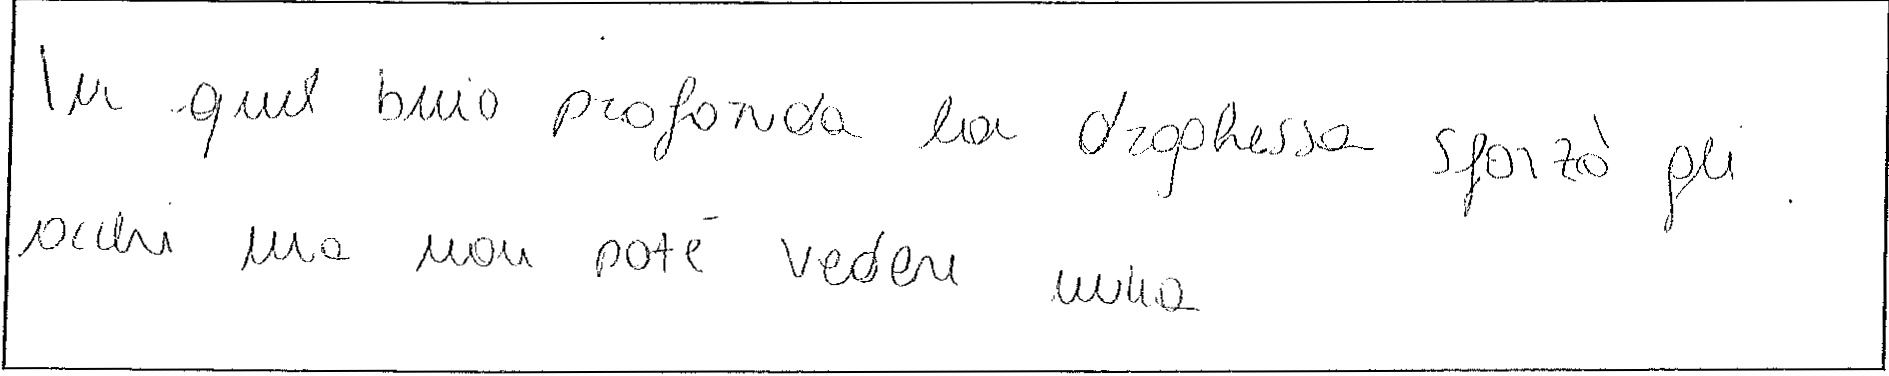 In quel buio profonda la draghessa sforzò gli
occhi ma non poté vedere nulla